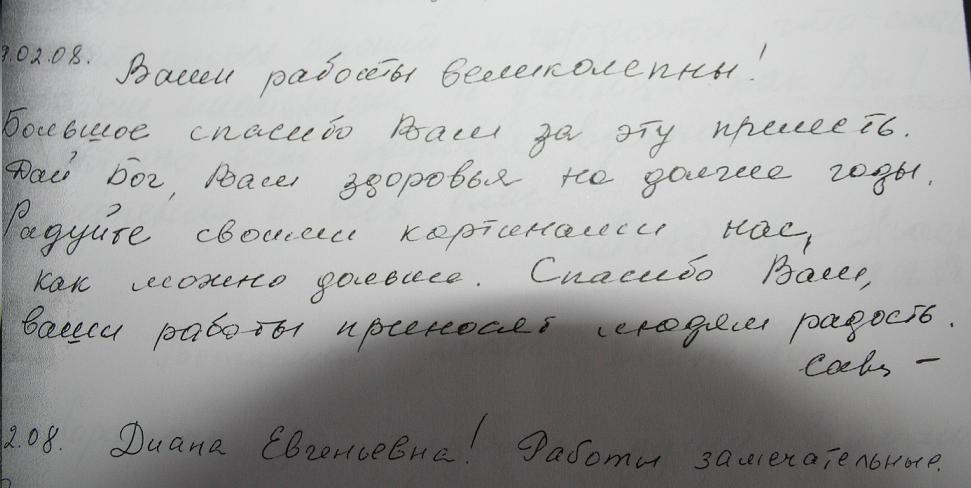 .02.08. Ваши работы великолепны!
Большое спасибо Вам за эту прелесть.
Дай Бог, Вам здоровья на долгие годы.
Радуйте своими картинами нас,
как можно дольше. Спасибо Вам,
ваши работы приносят людям радость.
2.08. Диана Евгеньевна! Работы замечательные.